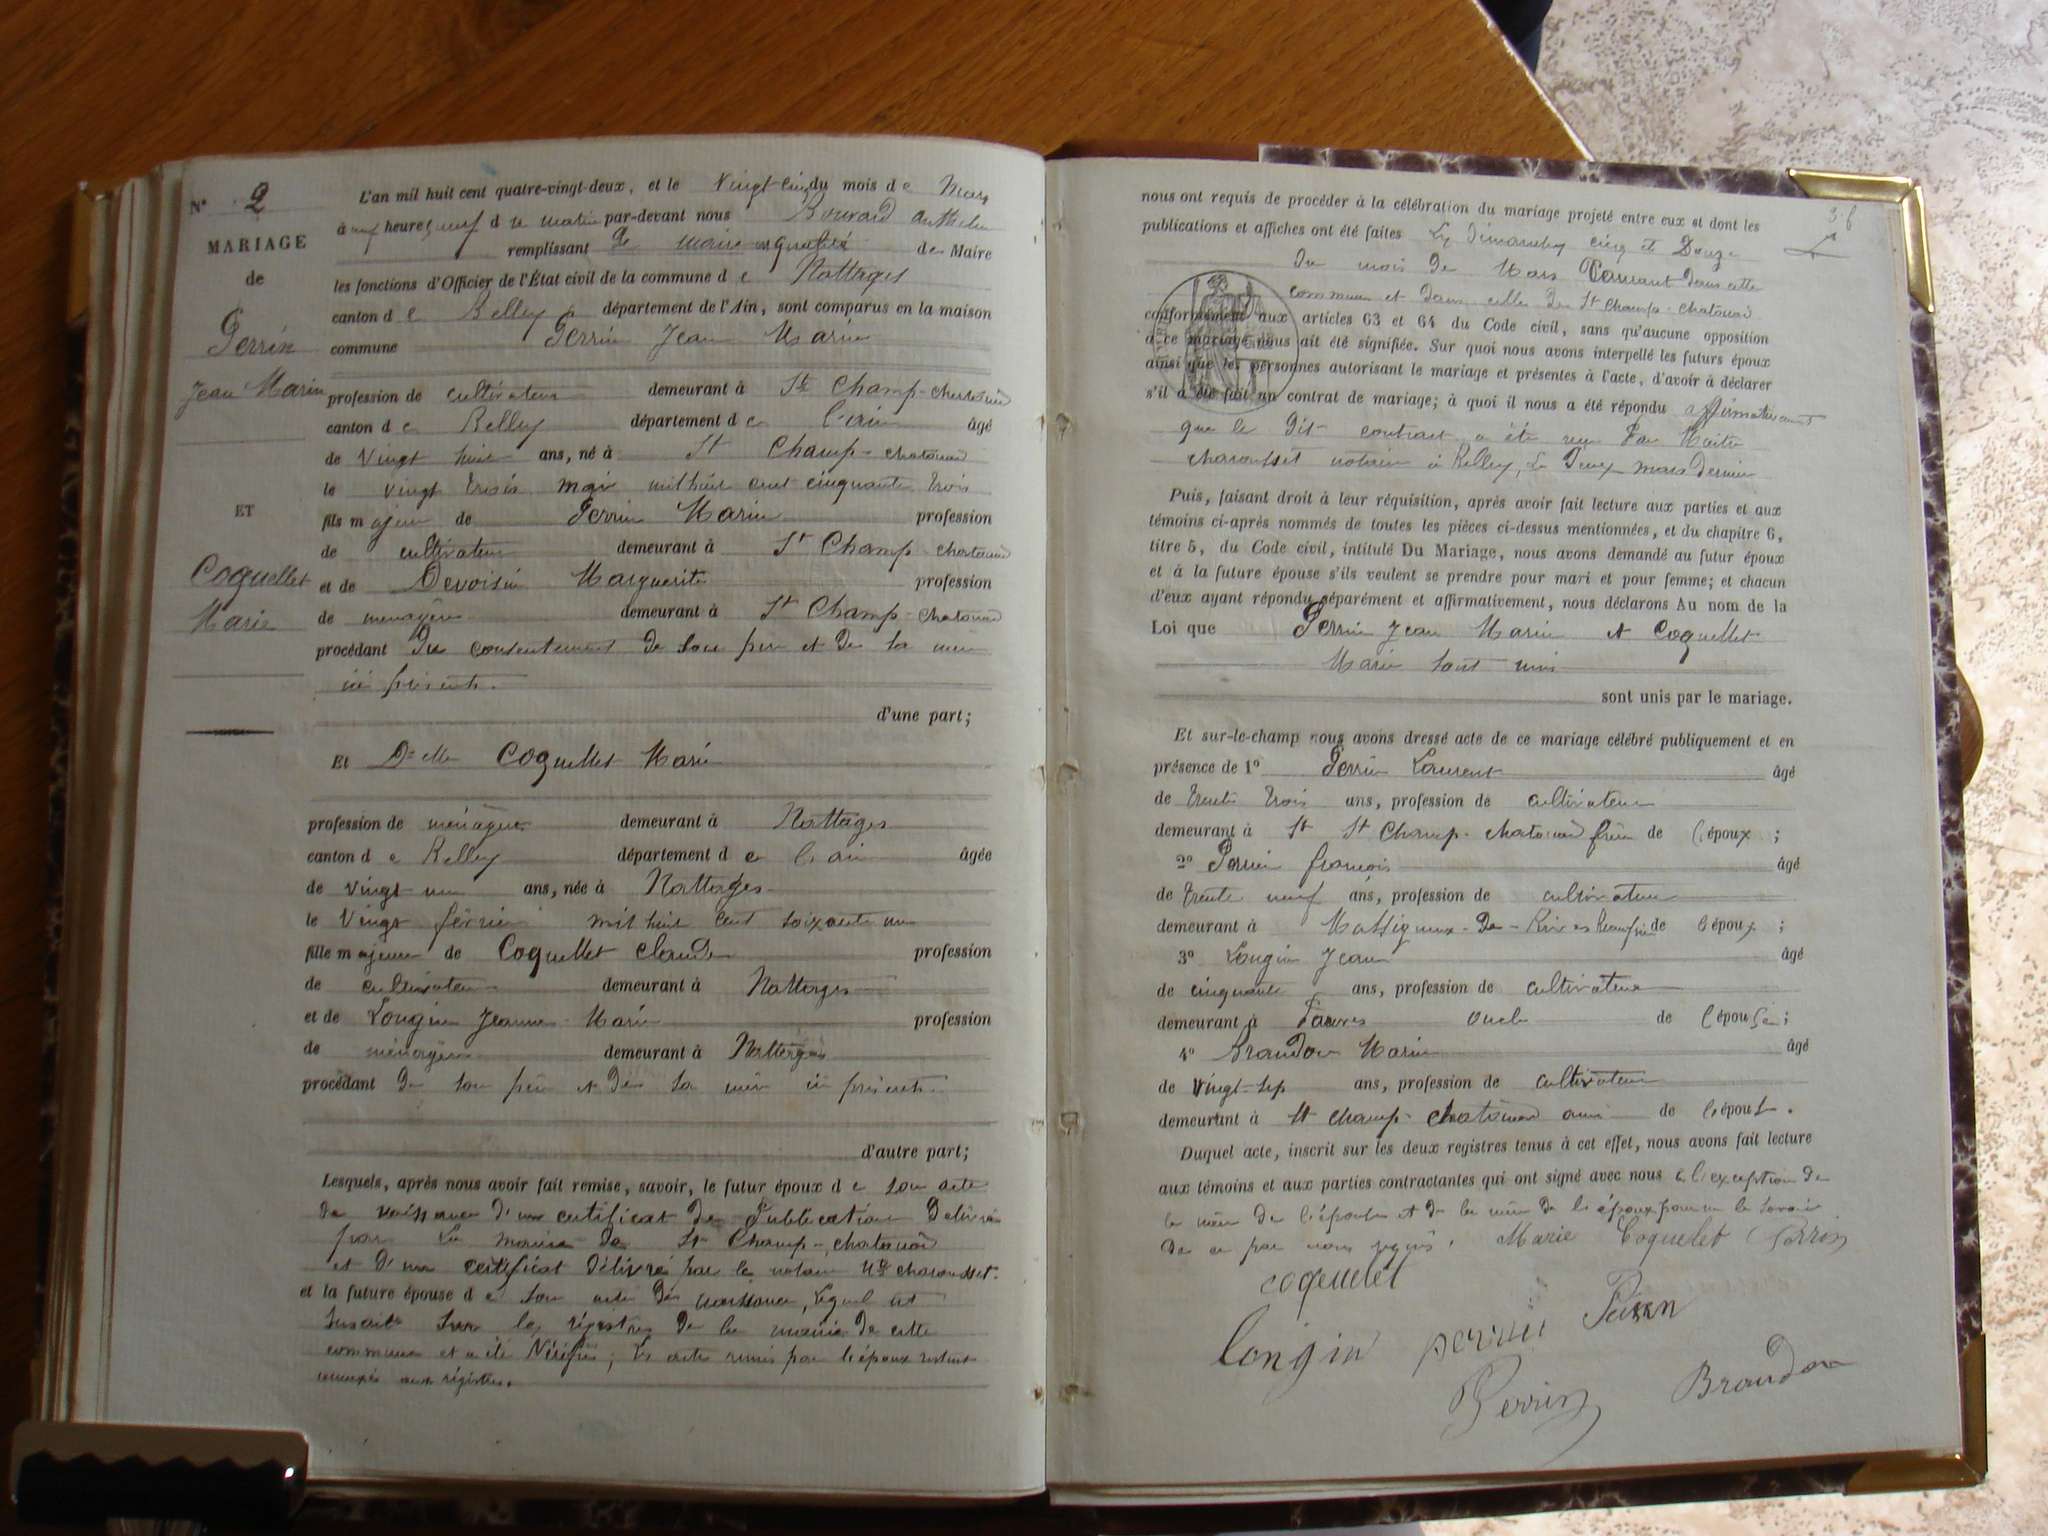 N° 2
MARIAGE
de
Perrin
Jean Marin
ET
Coquellet
Marie
L'an mil huit cent quatre-vingt-deux, et le Vingt cinq du mois de Mars
à neuf heures du matin par-devant nous Bouvard Anthelme
remplissant de Maire
les fonctions d'Officier de l'État civil de la commune de Nattages
canton de Belley département de l'Ain, sont comparus en la maison
commune Perrin Jean Marin
profession de cultivateur demeurant à St Champ-chatonod
canton de Belley département de l'ain âgé
de Vingt huit ans, né à St Champ-chatonod
le vingt trois mai mil huit cent cinquante trois
fils majeur de Perrin Marin profession
de cultivateur demeurant à St Champ-chatonod
et de Devoisin Marguerite profession
de ménagère demeurant à St Champ-chatonod
procédant Du consentement de son père et De sa mère
ici présents.
d'une part;
Et Delle Coquellet Marie
profession de ménagère demeurant à Nattages
canton de Belley département de l'ain âgée
de vingt un ans, née à Nattages
le Vingt février mil huit cent soixante un
fille majeure de Coquellet Claude profession
de cultivateur demeurant à Nattages
et de Longin Jeanne Marie profession
de ménagère demeurant à Nattages
procédant De son père et De sa mère ici présents.
d'autre part;
Lesquels, après nous avoir fait remise, savoir, le futur époux de son acte
de naissance d'un certificat de Publication Délivré
par La mairie de St Champ-chatonod
et d'un certificat délivré par le notaire Me charousset.
et la future épouse de son acte de naissance, Lequel est
Inscrit sur les régistres de la mairie de cette
commune et a été Vérifié; les actes remis par l'époux restent
annexés aux régistres.
nous ont requis de procéder à la célébration du mariage projeté entre eux et dont les
publications et affiches ont été faites Les Dimanches cinq et Douze
du mois de Mars Courant dans cette
commune et dans celle de St Champ-chatonod
conformément aux articles 63 et 64 du Code civil, sans qu'aucune opposition
à ce mariage nous ait été signifiée. Sur quoi nous avons interpellé les futurs époux
ainsi que les personnes autorisant le mariage et présentes à l'acte, d'avoir à déclarer
s'il a été fait un contrat de mariage; à quoi il nous a été répondu affirmativement
que le Dit contract a été reçu Par Maître
charousset notaire à Belley, Le Deux mars Dernier
Puis, faisant droit à leur réquisition, après avoir fait lecture aux parties et aux
témoins ci-après nommés de toutes les pièces ci-dessus mentionnées, et du chapitre 6,
titre 5, du Code civil, intitulé Du Mariage, nous avons demandé au futur époux
et à la future épouse s'ils veulent se prendre pour mari et pour femme; et chacun
d'eux ayant répondu séparément et affirmativement, nous déclarons Au nom de la
Loi que Perrin Jean Marin et Coquellet
Marie sont unis
sont unis par le mariage.
Et sur-le-champ nous avons dressé acte de ce mariage célébré publiquement et en
présence de 1° Perrin Laurent âgé
de trente trois ans, profession de cultivateur
demeurant à St St Champ-chatonod frère de l'époux;
2° Perrin françois âgé
de trente neuf ans, profession de cultivateur
demeurant à Massigneux-De-Rives de l'époux;
3° Longin Jean âgé
de cinquante ans, profession de cultivateur
demeurant à oncle de l'épouse;
4° Brandon Marin âgé
de Vingt-sep ans, profession de cultivateur
demeurant à St champ-chatonod ami de l'époux.
Duquel acte, inscrit sur les deux registres tenus à cet effet, nous avons fait lecture
aux témoins et aux parties contractantes qui ont signé avec nous à l'exception de
la mère De l'épouse et de la mère De l'époux pour ne le Savoir
De ce par nous requis. Marie Coquelet Perrin
coquelet
longin perrin Perrin
Perrin Brandon